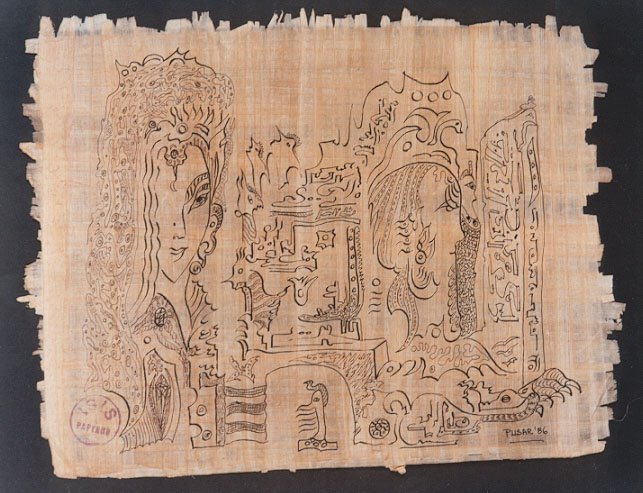 ISIS
PAPYRUS
PUSAR '86